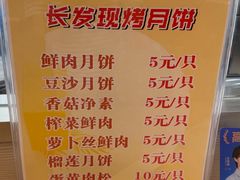 长发现烤月饼
鲜肉月饼 5元/只
豆沙月饼 5元/只
香菇净素 5元/只
榨菜鲜肉 5元/只
萝卜丝鲜肉 5元/只
榴莲月饼 5元/只
蛋黄肉松 10元/只